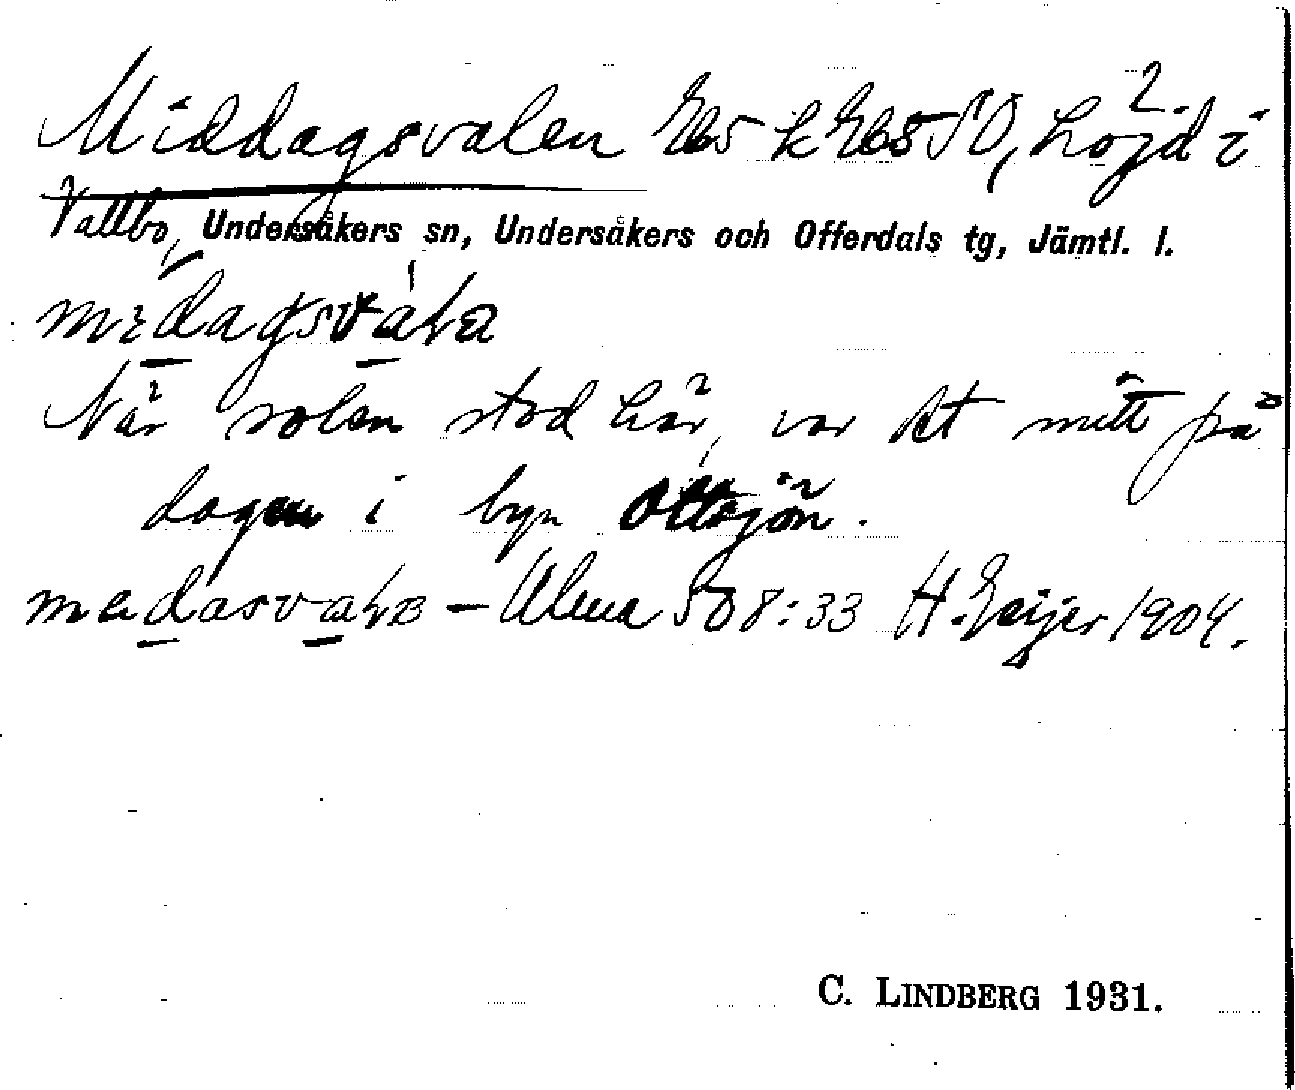 Middagsvalen Eb5 k Eb5 SV, höjd i
Vallbo, Undersåkers sn, Undersåkers och Offerdals tg, Jämtl. l.
medagsvàla
När solen stod här, var det mitt på
dagen i byn Ottsjön.
medasvalɐ – Ulma 508:33 H. Geijer 1904.
C. LINDBERG 1931.